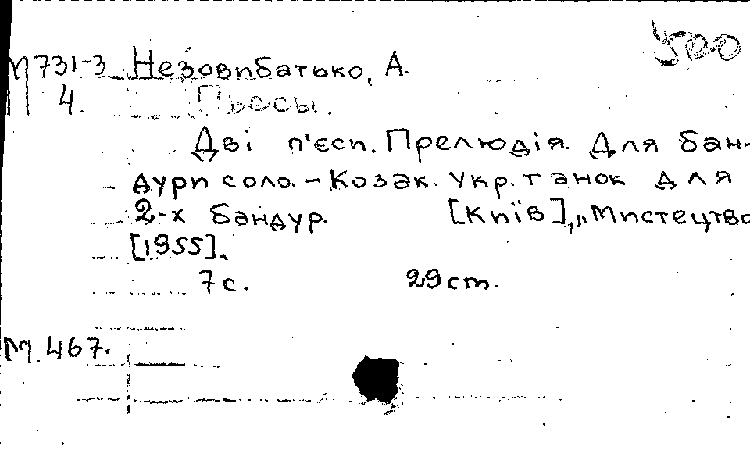 500
М731-3 Незовибатько, А.
4. Пьесы.
Дві п'єси. Прелюдія. Для бан-
дури соло. – Козак. укр. танок для
2-х бандур. [Київ], „Мистецтво
[1955].
7 с. 29 см.
М. 467.